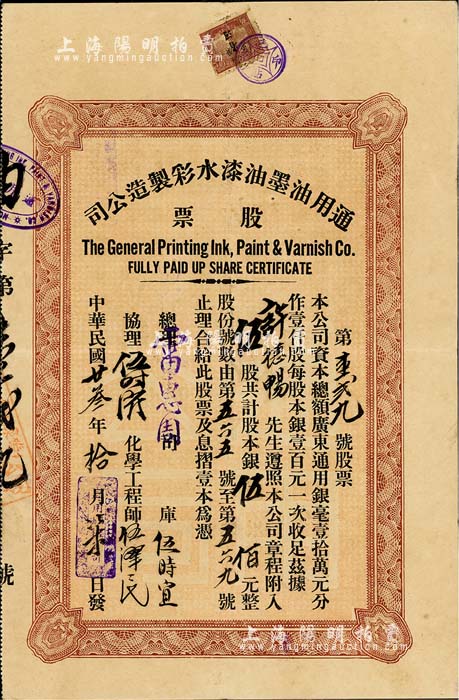 上海陽明拍賣
www.yangmingauction.com
司公造製彩水漆油墨油用通
票 股
The General Printing Ink, Paint & Varnish Co.
FULLY PAID UP SHARE CERTIFICATE
第 壹弍九 號股票
本公司資本總額廣東通用銀毫壹拾萬元分
作壹仟股每股本銀壹百元一次收足茲據
許 暢 先生遵照本公司章程附入
伍 股共計股本銀 伍 佰 元整
股份號數由第 五六五 號至第 五六九 號
止理合給此股票及息摺壹本為憑
總理 司庫 伍時宜
協理 伍 化學工程師 伍澤民
中華民國 廿叁 年 拾 月 日發
字第 號
上海陽明拍賣
www.yangmingauction.com